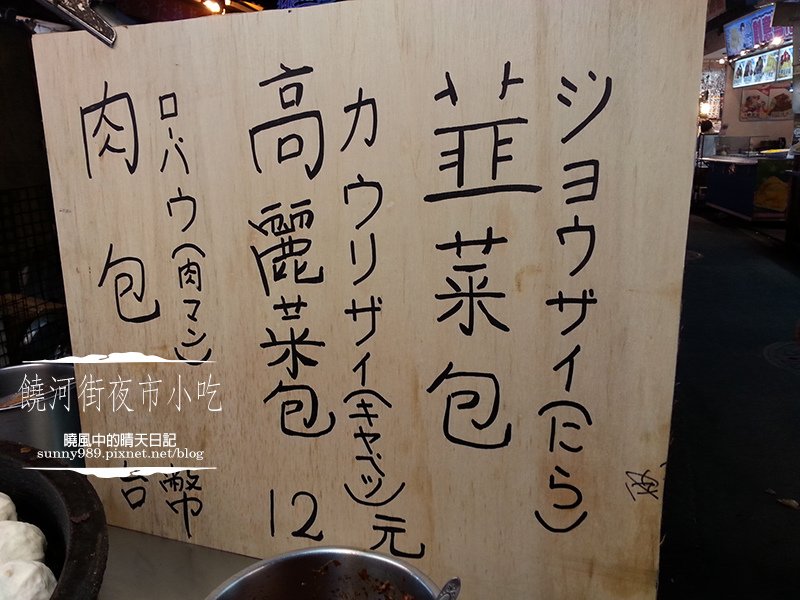 韮菜包
ショウザイ(にら)
高麗菜包
カウリザイ(キャベツ)
肉包
ローバウ(肉マン)
台幣 12 元
饒河街夜市小吃
曉風中的晴天日記
sunny989.pixnet.net/blog